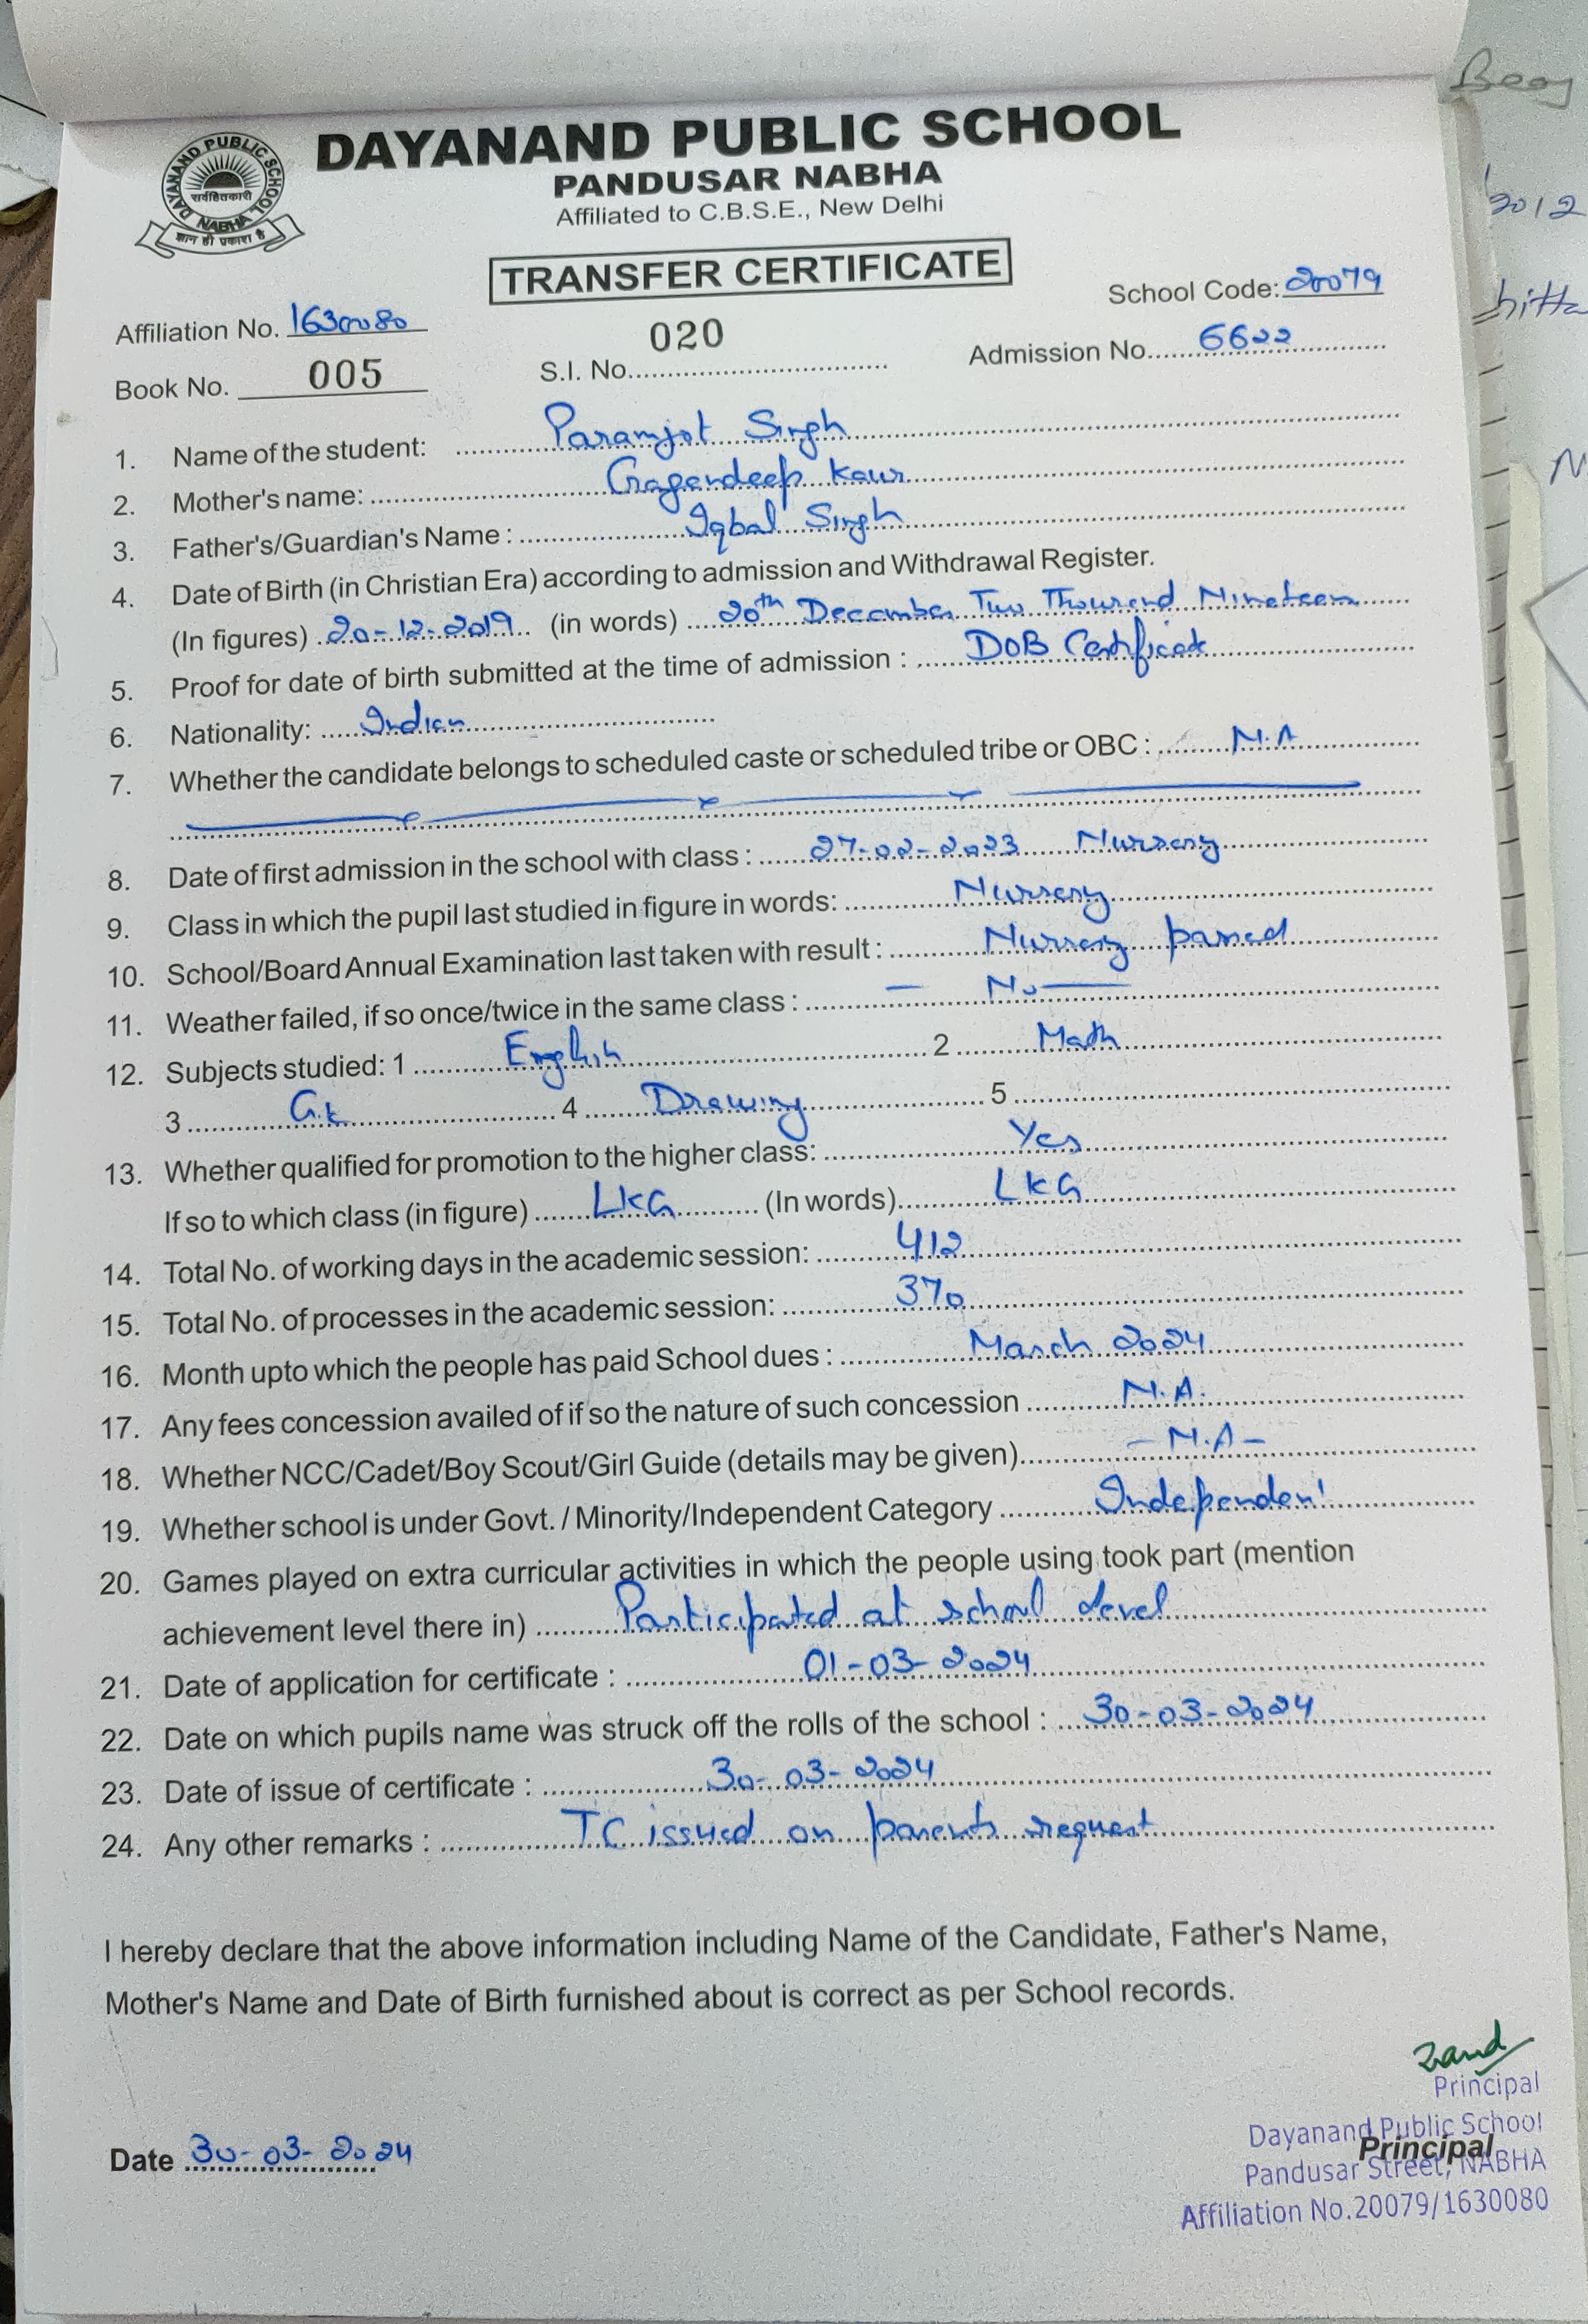 DAYANAND PUBLIC SCHOOL
PANDUSAR NABHA
Affiliated to C.B.S.E., New Delhi
DAYANAND PUBLIC SCHOOL
सर्वहितकारी
NABHA
ज्ञान ही प्रकाश है
TRANSFER CERTIFICATE
School Code: 20079
Affiliation No. 1630080
020
Book No. 005 S.I. No. Admission No. 6622
1. Name of the student: Paramjot Singh
2. Mother's name: Gagandeep Kaur
3. Father's/Guardian's Name : Iqbal Singh
4. Date of Birth (in Christian Era) according to admission and Withdrawal Register.
(In figures) 20-12-2019 (in words) 20th December Two Thousand Nineteen
5. Proof for date of birth submitted at the time of admission : DOB Certificate
6. Nationality: Indian
7. Whether the candidate belongs to scheduled caste or scheduled tribe or OBC : N.A
8. Date of first admission in the school with class : 27-02-2023 Nursery
9. Class in which the pupil last studied in figure in words: Nursery
10. School/Board Annual Examination last taken with result : Nursery passed
11. Weather failed, if so once/twice in the same class : — No —
12. Subjects studied: 1 English 2 Math
3 G.k 4 Drawing 5
13. Whether qualified for promotion to the higher class: Yes
If so to which class (in figure) LKG (In words) LKG
14. Total No. of working days in the academic session: 412
15. Total No. of processes in the academic session: 370
16. Month upto which the people has paid School dues : March 2024
17. Any fees concession availed of if so the nature of such concession N.A.
18. Whether NCC/Cadet/Boy Scout/Girl Guide (details may be given) - N.A -
19. Whether school is under Govt. / Minority/Independent Category Independent
20. Games played on extra curricular activities in which the people using took part (mention
achievement level there in) Participated at school level
21. Date of application for certificate : 01-03-2024
22. Date on which pupils name was struck off the rolls of the school : 30-03-2024
23. Date of issue of certificate : 30-03-2024
24. Any other remarks : TC issued on parents request
I hereby declare that the above information including Name of the Candidate, Father's Name,
Mother's Name and Date of Birth furnished about is correct as per School records.
Principal
Dayanand Public School
Principal
Pandusar Street, NABHA
Affiliation No.20079/1630080
Date 30-03-2024
2012